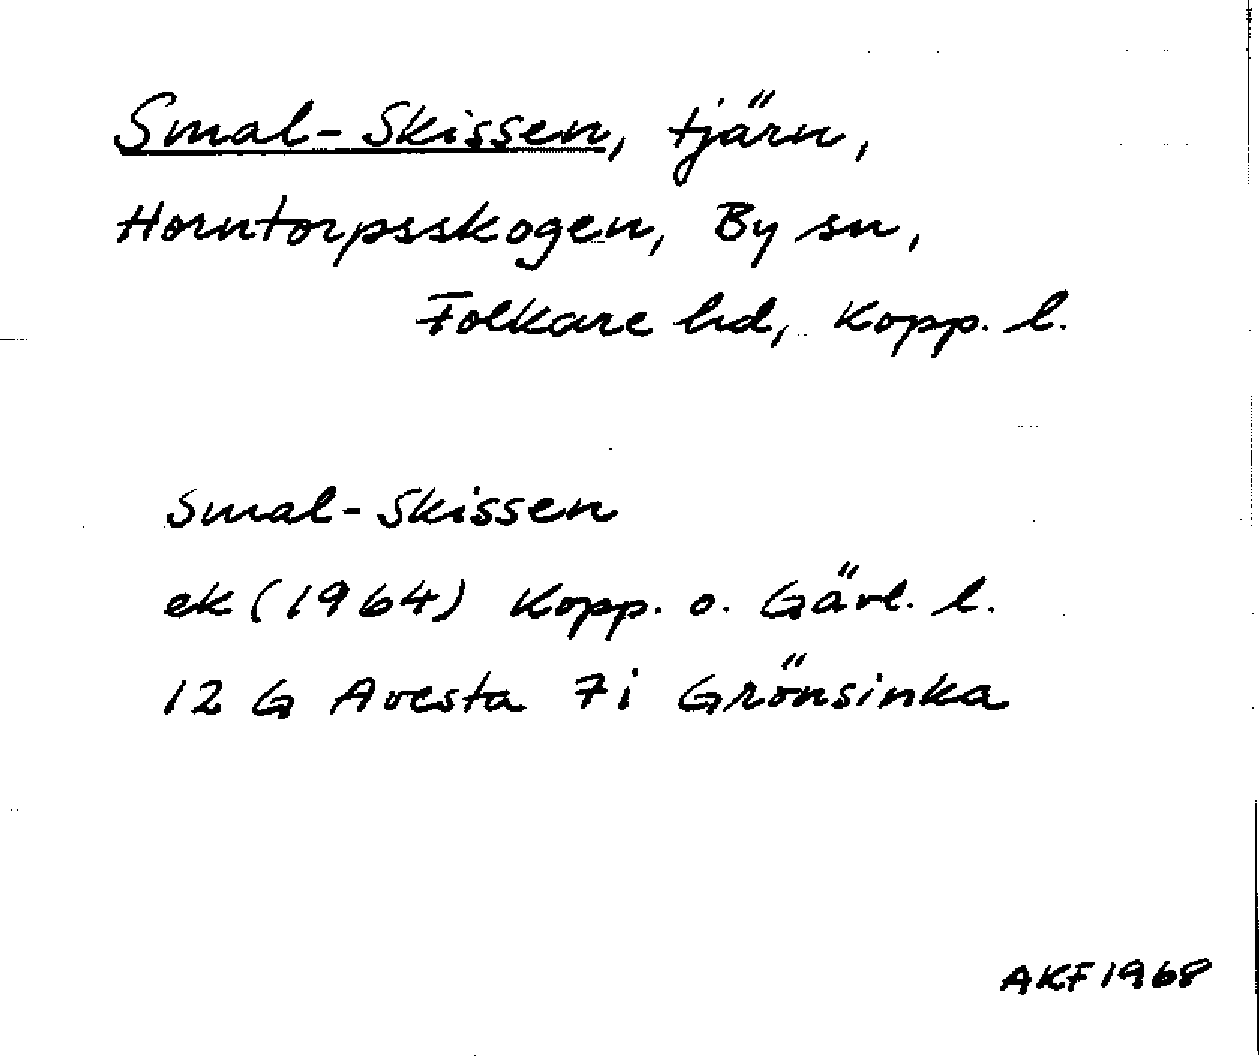 Smal-Skissen, tjärn,
Horntorpsskogen, By sn,
Folkare hd, Kopp. l.
Smal-Skissen
ek (1964) Kopp. o. Gävl. l.
12 G Avesta 7i Grönsinka
AKF 1968